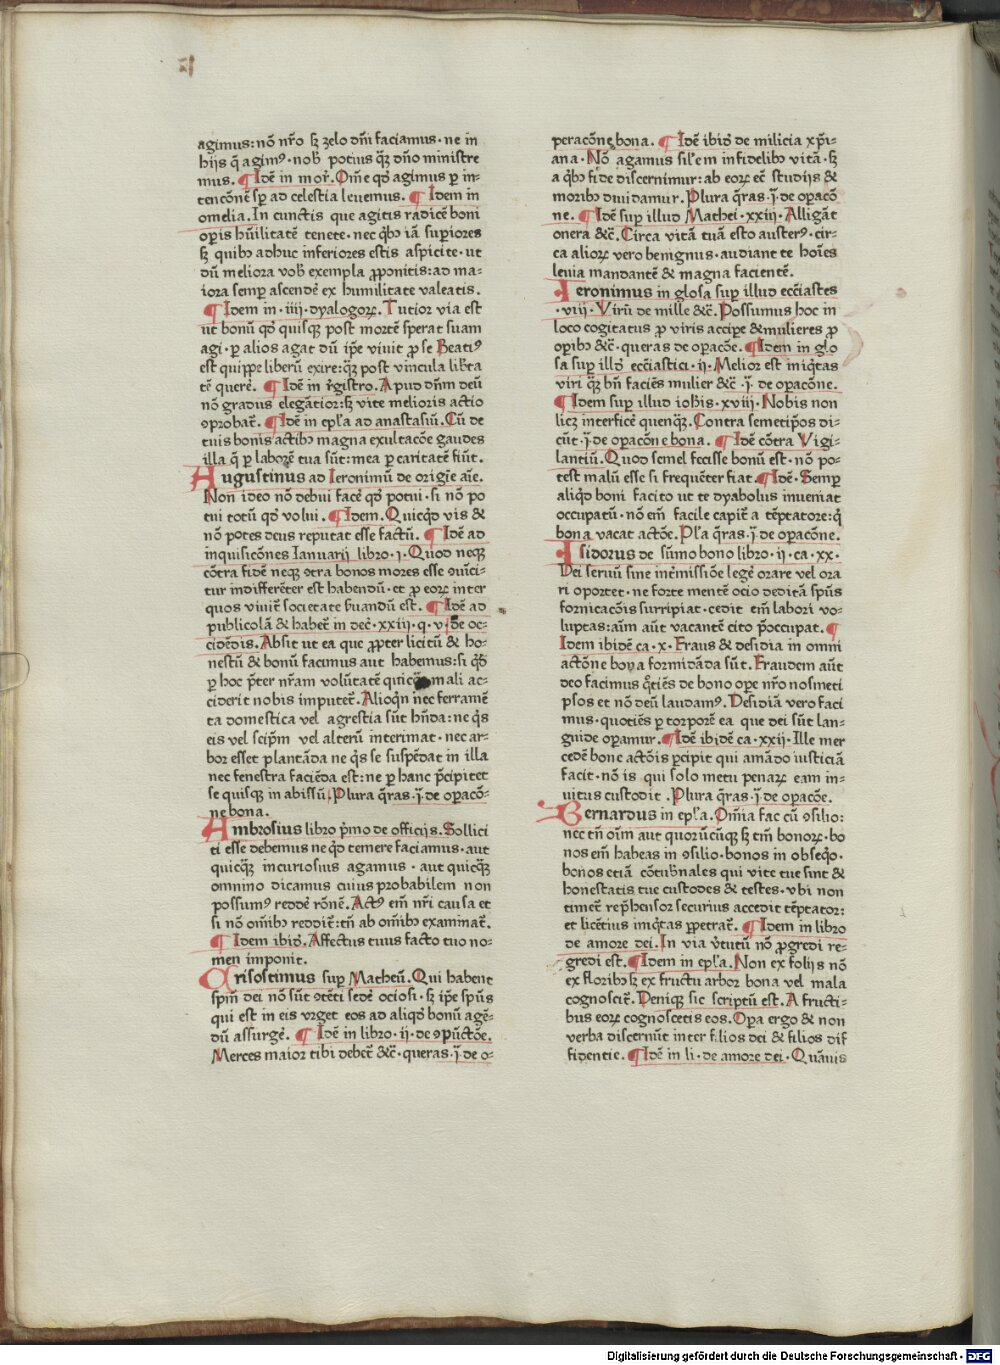 agimus: nō nr̄o sꝫ zelo dn̄i faciamus· ne in
hijs q̄ agimꝰ· nobꝭ potius qꝫ dn̄o ministre
mus. ¶ Idē in mor̄. Om̄e qd̓ agimus ꝑ in-
tencōnē sꝑ ad celestia leuemus. ¶ Idem in
omelia. In cunctis que agitis radicē boni
oꝑis hūilitatē tenete· nec qͥbꝫ iā suꝑiores
sꝫ quibꝫ adhuc inferiores estis aspicite· ut
dū meliora vob̓ exempla ꝓponitis: ad ma-
iora semꝑ ascendē ex humilitate valeatis.
¶ Idem in· iiij· dyalogoꝝ. Tutior via est
ut bonū qd̓ quisqꝫ post mortē sperat suam
agi· ꝑ alios agat dū ip̄e viuit ꝓ se Beatiꝰ
est quippe liberū exire: qꝫ post vincula lib̓ta
tē querē. ¶ Idē in r̓gistro. Apud dn̄m deū
nō gradus elegātior: sꝫ vite melioris actio
ꝯprobat̄. ¶ Idē in ep̄la ad anastasiū. Cū de
tuis bonis actibꝫ magna exultacōe gaudes
illa q̄ ꝑ laborē tua sūt: mea ꝑ caritatē fiūt.
Augustinus ad Ieronimū de origīe aīe.
Non ideo nō debui facē qd̓ potui· si nō po
tui totū qd̓ volui. ¶ Idem. Quicqͥd vis &
nō potes deus reputat esse factū. ¶ Idē ad
inquisicōnes Ianuarij libro· i· Quod neqꝫ
cōtra fidē neqꝫ ꝯtra bonos mores esse ꝯuīci-
tur indifferēter est habendū· et ꝓ eoꝝ inter
quos viuit̄ societate ẜuandū est. ¶ Idē ad
publicolā & habet̄ in dec̄· xxiij· q· v· de oc-
cidēdis. Absit ut ea que ꝓpter licitū & ho-
nestū & bonū facimus aut habemus: si qͥd
ꝑ hoc p̄ter nr̄am volūtatē quicqꝫ mali ac-
ciderit nobis imputet̄. Alioqͥn nec ferramē
ta domestica vel agrestia sūt hn̄da: ne qͥs
eis vel seip̄m vel alterū interimat· nec ar-
bor esset plantāda ne qͥs se suspēdat in illa
nec fenestra faciēda est: ne ꝑ hanc p̄cipitet
se quisqꝫ in abissū. Plura qͣras· j̄· de oꝑacō-
ne bona.
Ambrosius libro pͥmo de officijs. Sollici
ti esse debemus ne qͥd temere faciamus· aut
quicqꝫ incuriosius agamus· aut quicqꝫ
omnino dicamus cuius probabilem non
possumꝰ reddē rōnē. Actꝰ em̄ nr̄i causa et
si nō om̄ibꝫ reddit̄: tn̄ ab om̄ibꝫ examinat̄.
¶ Idem ibid̓. Affectus tuus facto tuo no-
men imponit.
Crisostimus suꝑ Matheū. Qui habent
spm̄ dei nō sūt ꝯtēti sedē ociosi· sꝫ ip̄e sp̄us
qui est in eis vrget eos ad aliqd̓ bonū agē-
dū assurgē. ¶ Idē in libro· ij· de ꝯpūctōe.
Merces maior tibi debet̄ &c̄· queras· j̄· de o-
peracōne bona. ¶ Idē ibid̓ de milicia xp̄i-
ana· Nō agamus sil̓em infidelibꝫ vitā· sꝫ
a qͥbꝫ fide discernimur: ab eoꝝ eē studijs &
moribꝫ diuidamur. Plura qͣras· j̄· de oꝑacō
ne. ¶ Idē suꝑ illud Mathei· xxiij· Alligāt
onera &c̄. Circa vitā tuā esto austerꝰ· cir-
ca alioꝝ vero benignus· audiant te hoīes
leuia mandantē & magna facientē.
Ieronimus in glosa suꝑ illud eccīastes
· viij· Virū de mille &c̄. Possumus hoc in
loco cogitatus ꝓ viris accipe & mulieres ꝓ
oꝑibꝫ &c̄· queras de oꝑacōe. ¶ Idem in glo
sa suꝑ illd̓ eccīastici· ij· Melior est iniqͥtas
viri qꝫ bn̄ faciēs mulier &c̄· j̄· de oꝑacōne.
¶ Idem suꝑ illud iob̓is· xviij· Nobis non
licꝫ interficē quenqꝫ. Contra semetip̄os di-
cūt· j̄· de oꝑacōne bona. ¶ Idē cōtra Vigi-
lantiū. Quod semel fecisse bonū est· nō po-
test malū esse si frequēter fiat. ¶ Idē. Semꝑ
aliqͥd boni facito ut te dyabolus inueniat
occupatū· nō em̄ facile capit̄ a tēptatore: q̄
bona vacat actōe. Pl̓a qͣras· j̄· de oꝑacōne.
Isidorus de sūmo bono libro· ij· ca· xx·
Dei seruū sine in̄missiōe legē orare vel ora
ri oportet· ne forte mentē ocio deditā sp̄us
fornicacōis surripiat· cedit em̄ labori vo-
luptas: aīm aūt vacantē cito p̄occupat. ¶
Idem ibidē ca· x· Fraus & desidia in omni
actōne bona formidāda sūt. Fraudem aūt
deo facimus qͦtiēs de bono oꝑe nr̄o nosmeti
psos et nō deū laudamꝰ. Desidiā vero faci
mus· quotiēs ꝑ torporē ea que dei sūt lan-
guide oꝑamur. ¶ Idē ibidē ca· xxij· Ille mer
cedē bone actōis ꝑcipit qui amādo iusticiā
facit· nō is qui solo metu penaꝝ eam in-
uitus custodit. Plura qͣras· j̄· de oꝑacōe.
Bernardus in ep̄la. Om̄ia fac cū ꝯsilio:
nec tn̄ oīm aut quorūcūqꝫ sꝫ tm̄ bonoꝝ· bo
nos em̄ habeas in ꝯsilio· bonos in obseqͦ·
bonos etiā cōtub̓nales qui vite tue sint &
honestatis tue custodes & testes· vbi non
timet̄ rep̄hensor securius accedit tēptator:
et licētius iniqͥtas ꝑpetrat̄. ¶ Idem in libro
de amore dei. In via v̓tutū nō ꝓgredi re-
gredi est. ¶ Idem in ep̄la. Non ex folijs nō
ex floribꝫ sꝫ ex fructu arbor bona vel mala
cognoscit̄. Deniqꝫ sic scriptū est. A fructi-
bus eoꝝ cognoscetis eos. Oꝑa ergo & non
verba discernūt inter filios dei & filios dif
fidentie. ¶ Idē in li· de amore dei· Quāuis
Digitalisierung gefördert durch die Deutsche Forschungsgemeinschaft - DFG